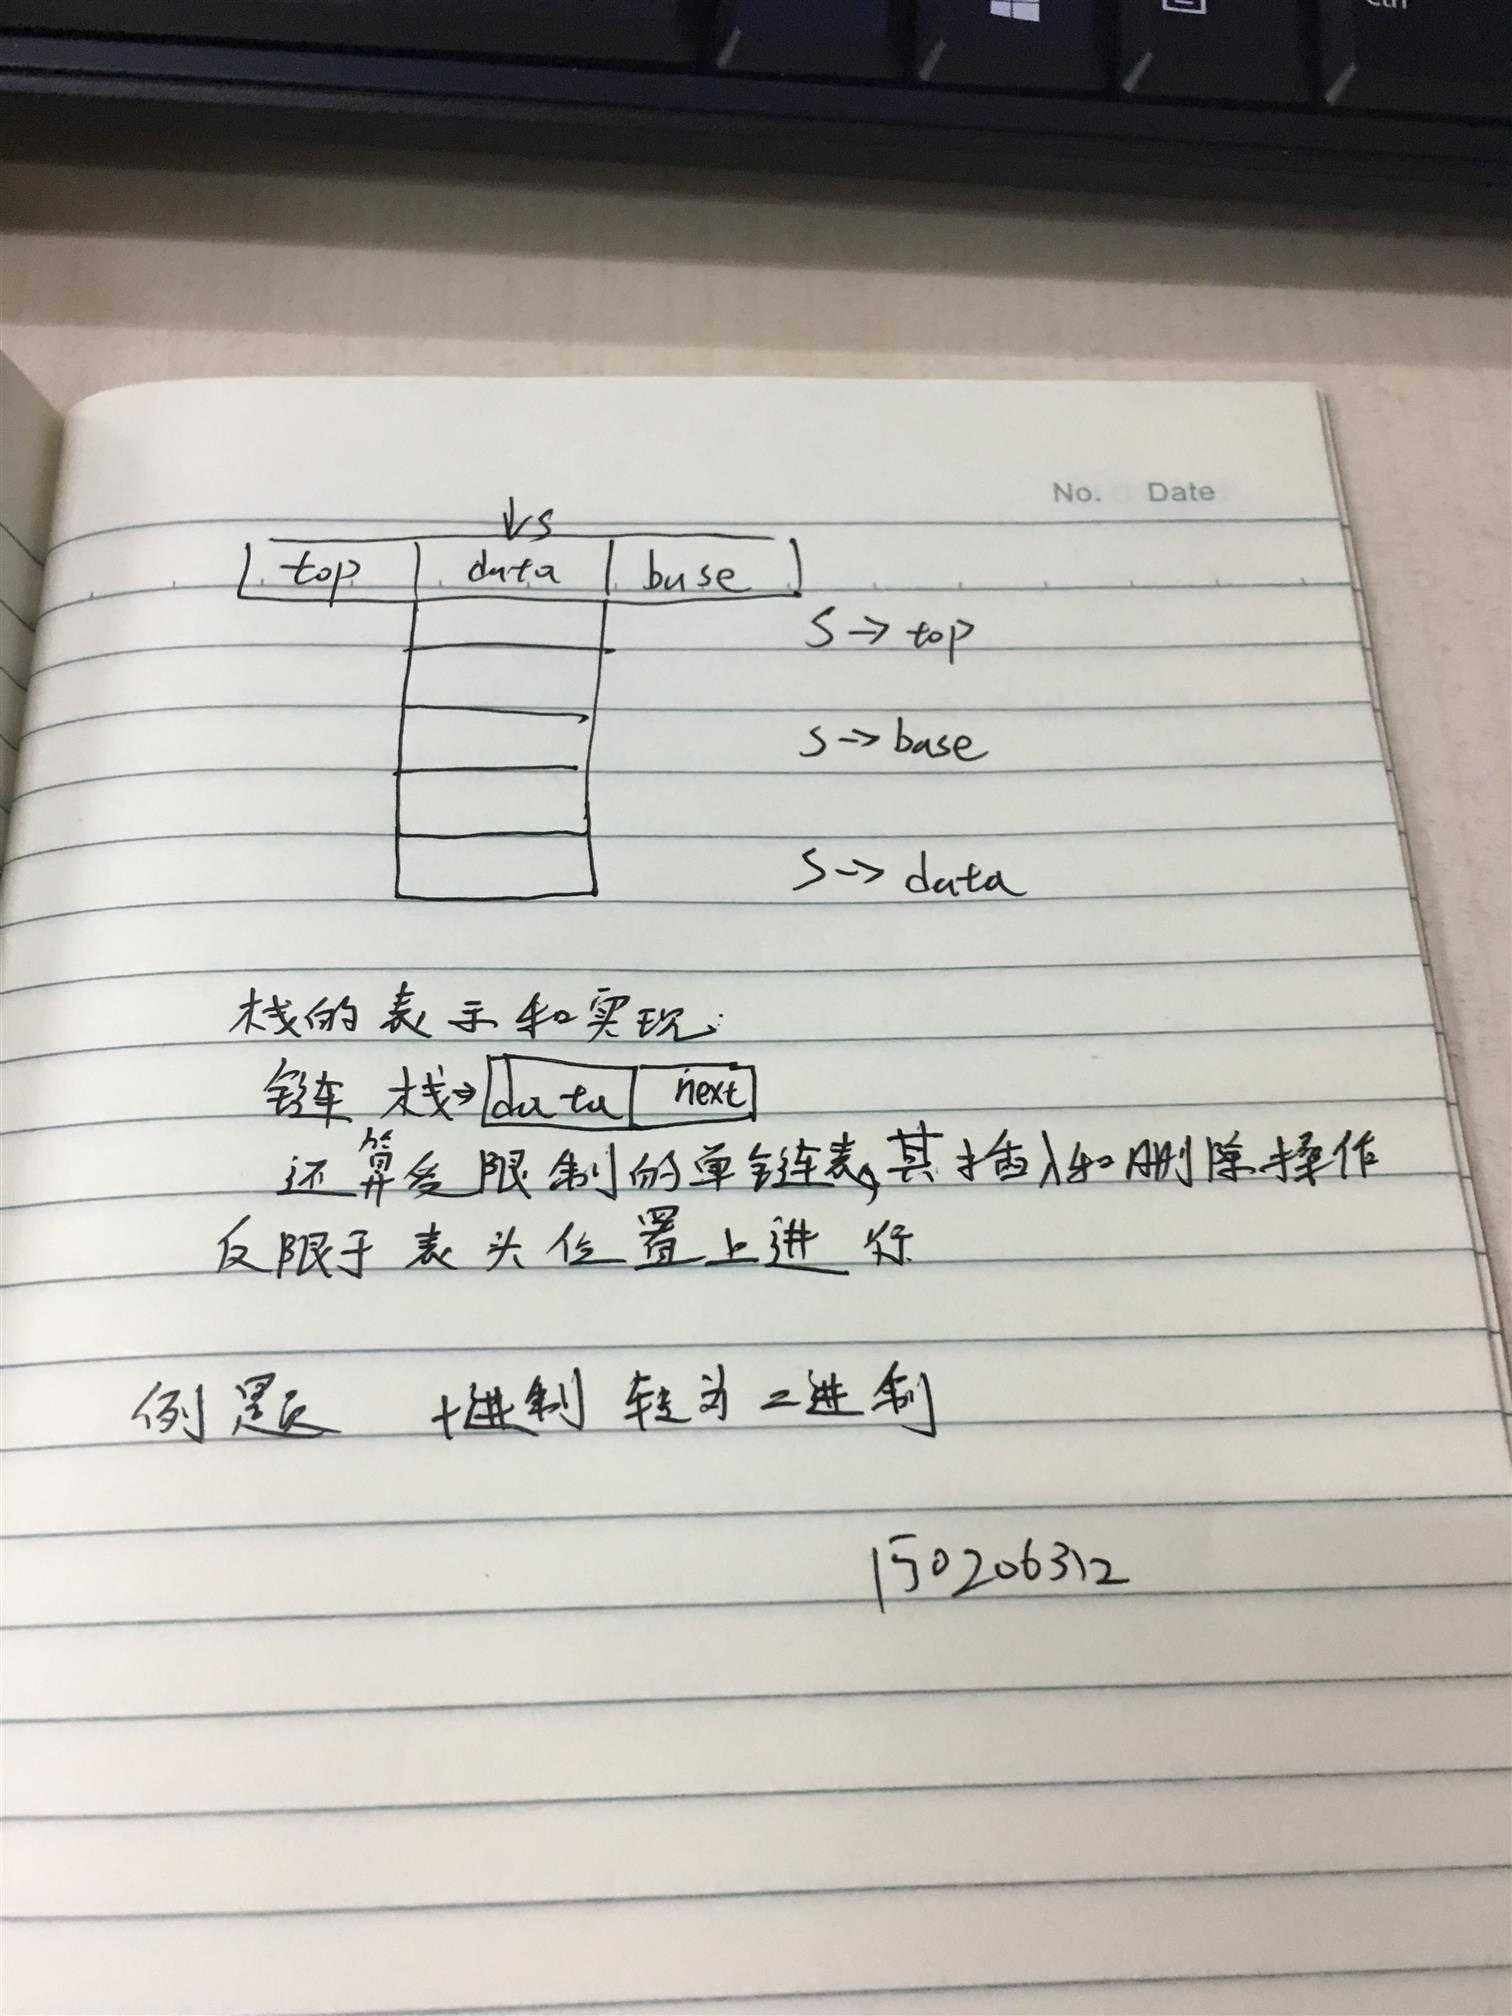 Ctrl
No. Date
↓s
top data base
s → top
s → base
s → data
栈的表示和实现:
链栈→ data next
还算受限制的单链表,其插入和删除操作
仅限于表头位置上进行
例题 十进制转为二进制
150206312